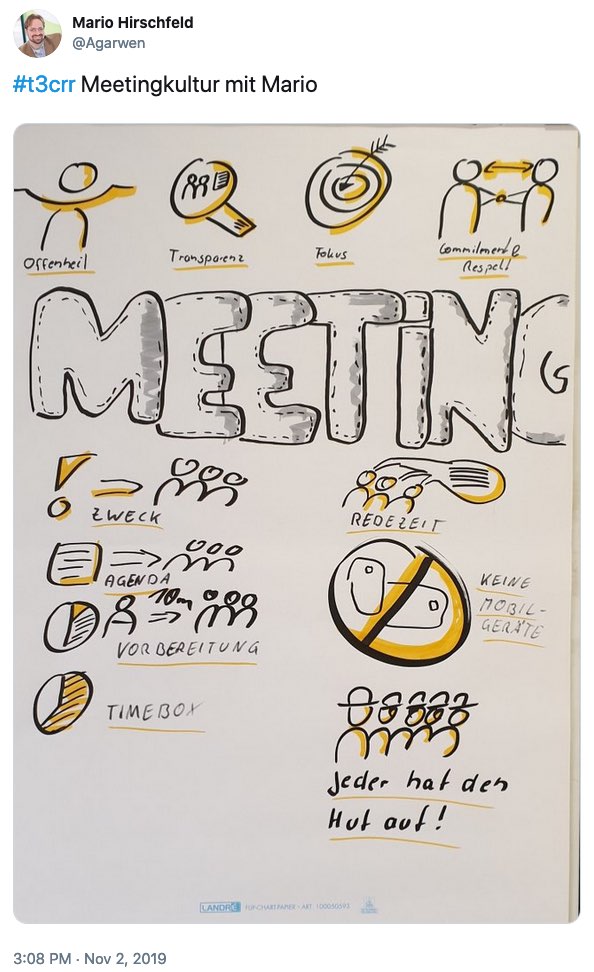 Mario Hirschfeld
@Agarwen
#t3crr Meetingkultur mit Mario
Offenheit
Transparenz
Fokus
Commitment &
Respekt
MEETING
ZWECK
REDEZEIT
AGENDA
KEINE
MOBIL-
GERÄTE
10m
VORBEREITUNG
TIMEBOX
Jeder hat den
Hut auf!
LANDRÉ FLIP-CHART-PAPIER - ART. 100050593
3:08 PM · Nov 2, 2019